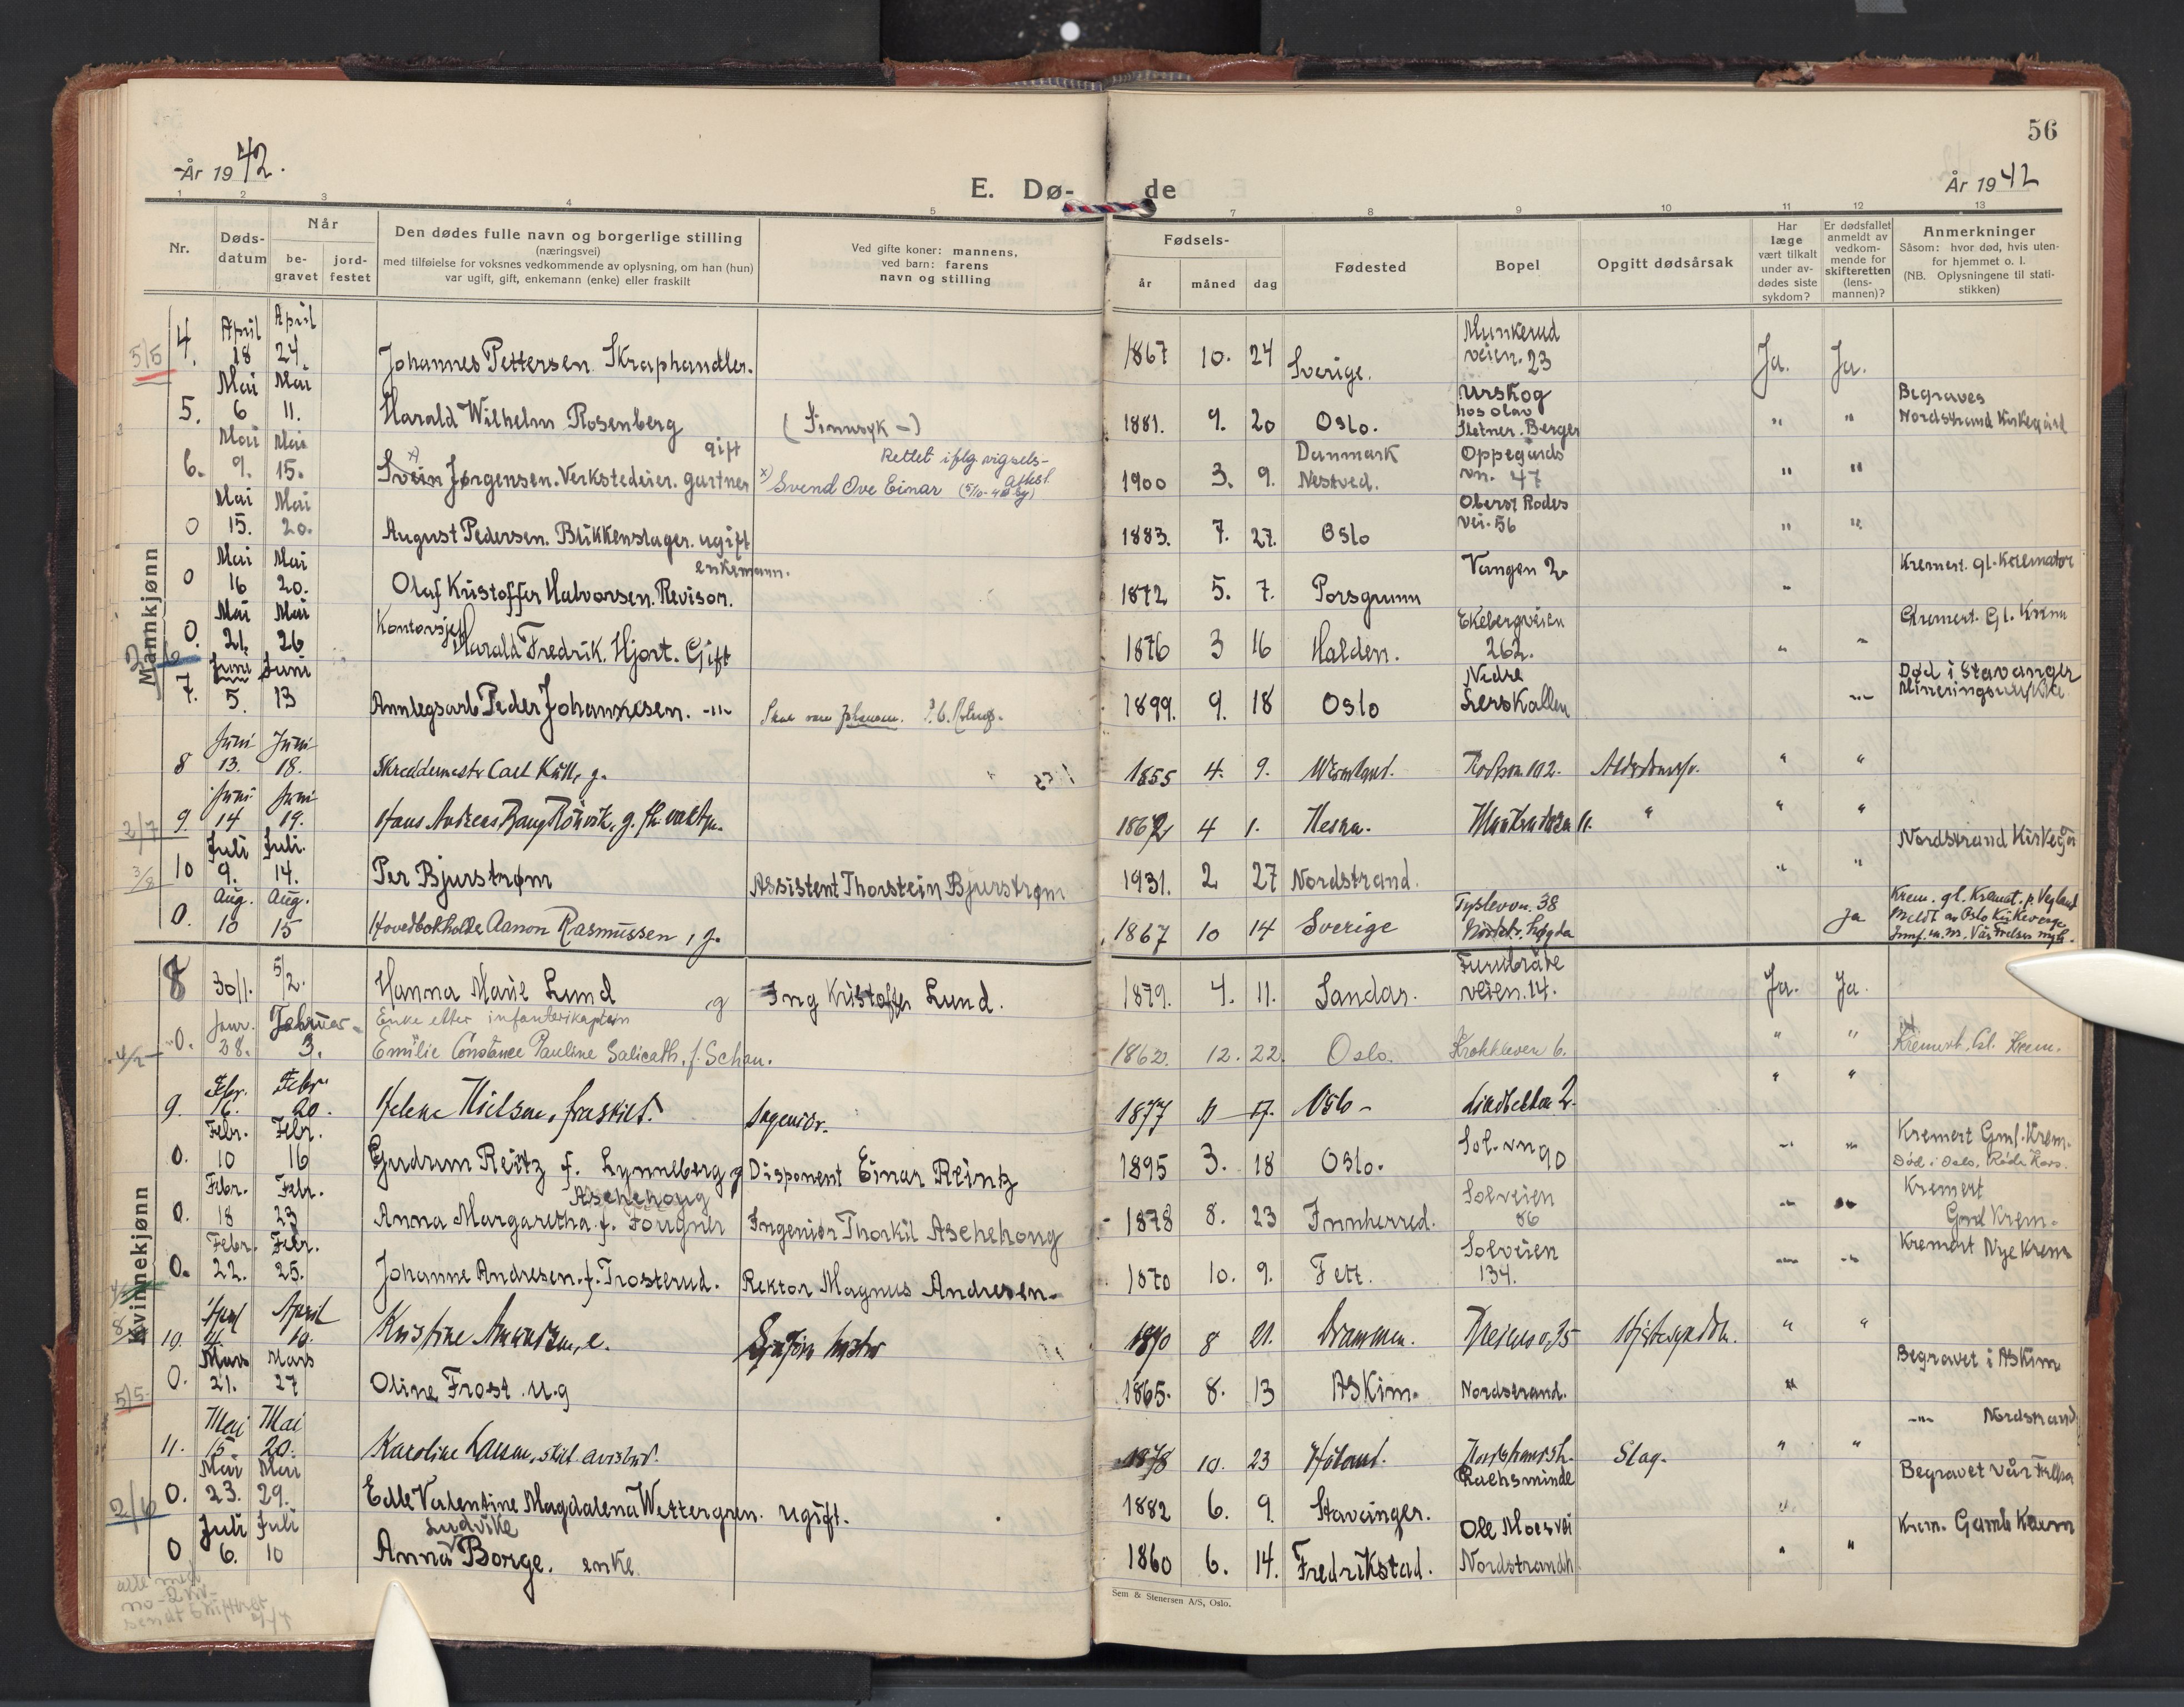 56
År 1942.
E. Dø- de
År 1942
1 2 3 4 5 7 8 9 10 11 12 13
Nr.
Døds-
datum
Når
be-
gravet
jord-
festet
Den dødes fulle navn og borgerlige stilling
(næringsvei)
med tilføielse for voksnes vedkommende av oplysning, om han (hun)
var ugift, gift, enkemann (enke) eller fraskilt
Ved gifte koner: mannens,
ved barn: farens
navn og stilling
Fødsels-
år måned dag
Fødested
Bopel
Opgitt dødsårsak
Har
læge
vært tilkalt
under av-
dødes siste
sykdom?
Er dødsfallet
anmeldt av
vedkom-
mende for
skifteretten
(lens-
mannen)?
Anmerkninger
Såsom: hvor død, hvis uten-
for hjemmet o. l.
(NB. Oplysningene til stati-
stikken)
Mannkjønn
5/5 4. April 18 April 24. Johannes Pettersen Skraphandler. 1867 10. 24 Sverige. Munkerud veien. 23 Ja. Ja.
5. Mai 6 Mai 11. Harald Wilhelm Rosenberg (Sinnsyk -) 1881. 9. 20 Oslo. Urskog hos Olav Sletner. Berger " " Begraves Nordstrand Kirkegård
6. Mai 9. Mai 15. x) Svein Jørgensen. Verkstedeier. gartner gift x) Svend Ove Einar Rettet iflg. vigsels- attest 1900 3. 9. Danmark Nestved. Oppegårds vn. 47 " "
0 Mai 15. Mai 20. August Pedersen. Blikkenslager. ugift 1883. 7. 27. Oslo Oberst Rodes vei. 56 " "
0 Mai 16 Mai 20. Olaf Kristoffer Halvorsen. Revisor. enkemann. 1872 5. 7. Porsgrunn Vangen 2 " Kremert. gl. Kremator
0. Mai 21. Mai 26 Kontorsjef Harald Fredrik. Hjort. Gift 1876 3 16 Halden. Ekebergveien 262. " " Kremert. Gl. Krem
7. Juni 5. Juni 13 Annlegsarb Peder Johannesen. -"- 1899. 9. 18 Oslo Nedre Lerskallen -"- Død i Stavanger
8 Juni 13. Juni 18. Skreddermestr Carl g. 1855 4. 9. " "
2/7 9. Juni 14 Juni 19. Hans Andreas Bang g. 1862 4 1. " " "
3/8 10 Juli 9. Juli 14. Per Bjurstrøm Assistent Thorstein Bjurstrøm 1931. 2 27 Nordstrand. " " Nordstrand Kirkegå
0. Aug. 10 Aug. 15 Hovedbokholder Aanon Rasmussen, g. 1867 10 14 Sverige 38 Nordstr. høgda Ja Krem. gl. Kremt. p. Vegland Meldt av Oslo Kirkeverge
Kvinnekjønn
8 30/1. 5/2. Hanna Marie Lund g Ing Kristoffer Lund. 1879. 4. 11. Sandar. Furubråte veien. 14. Ja. Ja.
4/2 0. Janr. 28. Februar 3. Enke etter infanterikaptein Emilie Constance Pauline Salicath, f. Schau. 1862. 12. 22. Oslo. Krokkleven 6. " " Kremert. Gl. Krem.
9. Febr. 16. Febr. 20. Helene Nielsen, fraskilt. Ingeniør. 1877 17. Oslo - " "
0. Febr. 10 Febr. 16 Gudrun Reitz f. Lynneberg g Disponent Einar Reintz 1895 3. 18 Oslo. Sol. vn 90 -"- -"- Kremert Gml. Krem. Død i Oslo. Røde Kors.
0. Febr. 18 Febr. 23 Anna Margaretha Aschehoug f. Fougner Ingeniør Thorkil Aschehoug 1878 8. 23 Innherred. Solveien 86 -"- -"- Kremert Gml Krem.
0. Febr. 22. Febr. 25. Johanne Andresen. f. Trosterud. Rektor Magnus Andresen. 1870 10. 9. Fett. Solveien 134. -"- -"- Kremert Nye Krem
10. April April 10. Kristine e. 8 21. Drammen. Hjertesykdom. " "
5/5 0. Mars 21. Mars 27 Oline Frost. u.g 1865. 8. 13 Askim. Nordstrand. " Begravet i Askim
11. Mai 15. Mai 20. Karoline Larsen, skilt avisbud. 1878 10. 23 Høland. Slag. " " -"- Nordstrand
2/6 0. Mai 23. Mai 29. Edle Valentine Magdalena Wettergren. ugift. 1882 6. 9. Stavanger. Raehsminde " Begravet Vår Frelser
0 Juli 6. Juli 10 Anna Ludvike Borge. enke 1860 6. 14. Fredrikstad. Ole Moes vei Nordstrandh " " Krem. Gamle Krem
alle med
Sem & Stenersen A/S, Oslo.